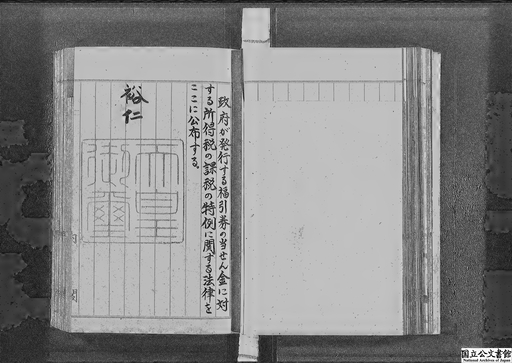 政府が発行する福引券の当せん金に対
する所得税の課税の特例に関する法律を
ここに公布する。
裕仁
天皇
御璽
内閣
国立公文書館
National Archives of Japan